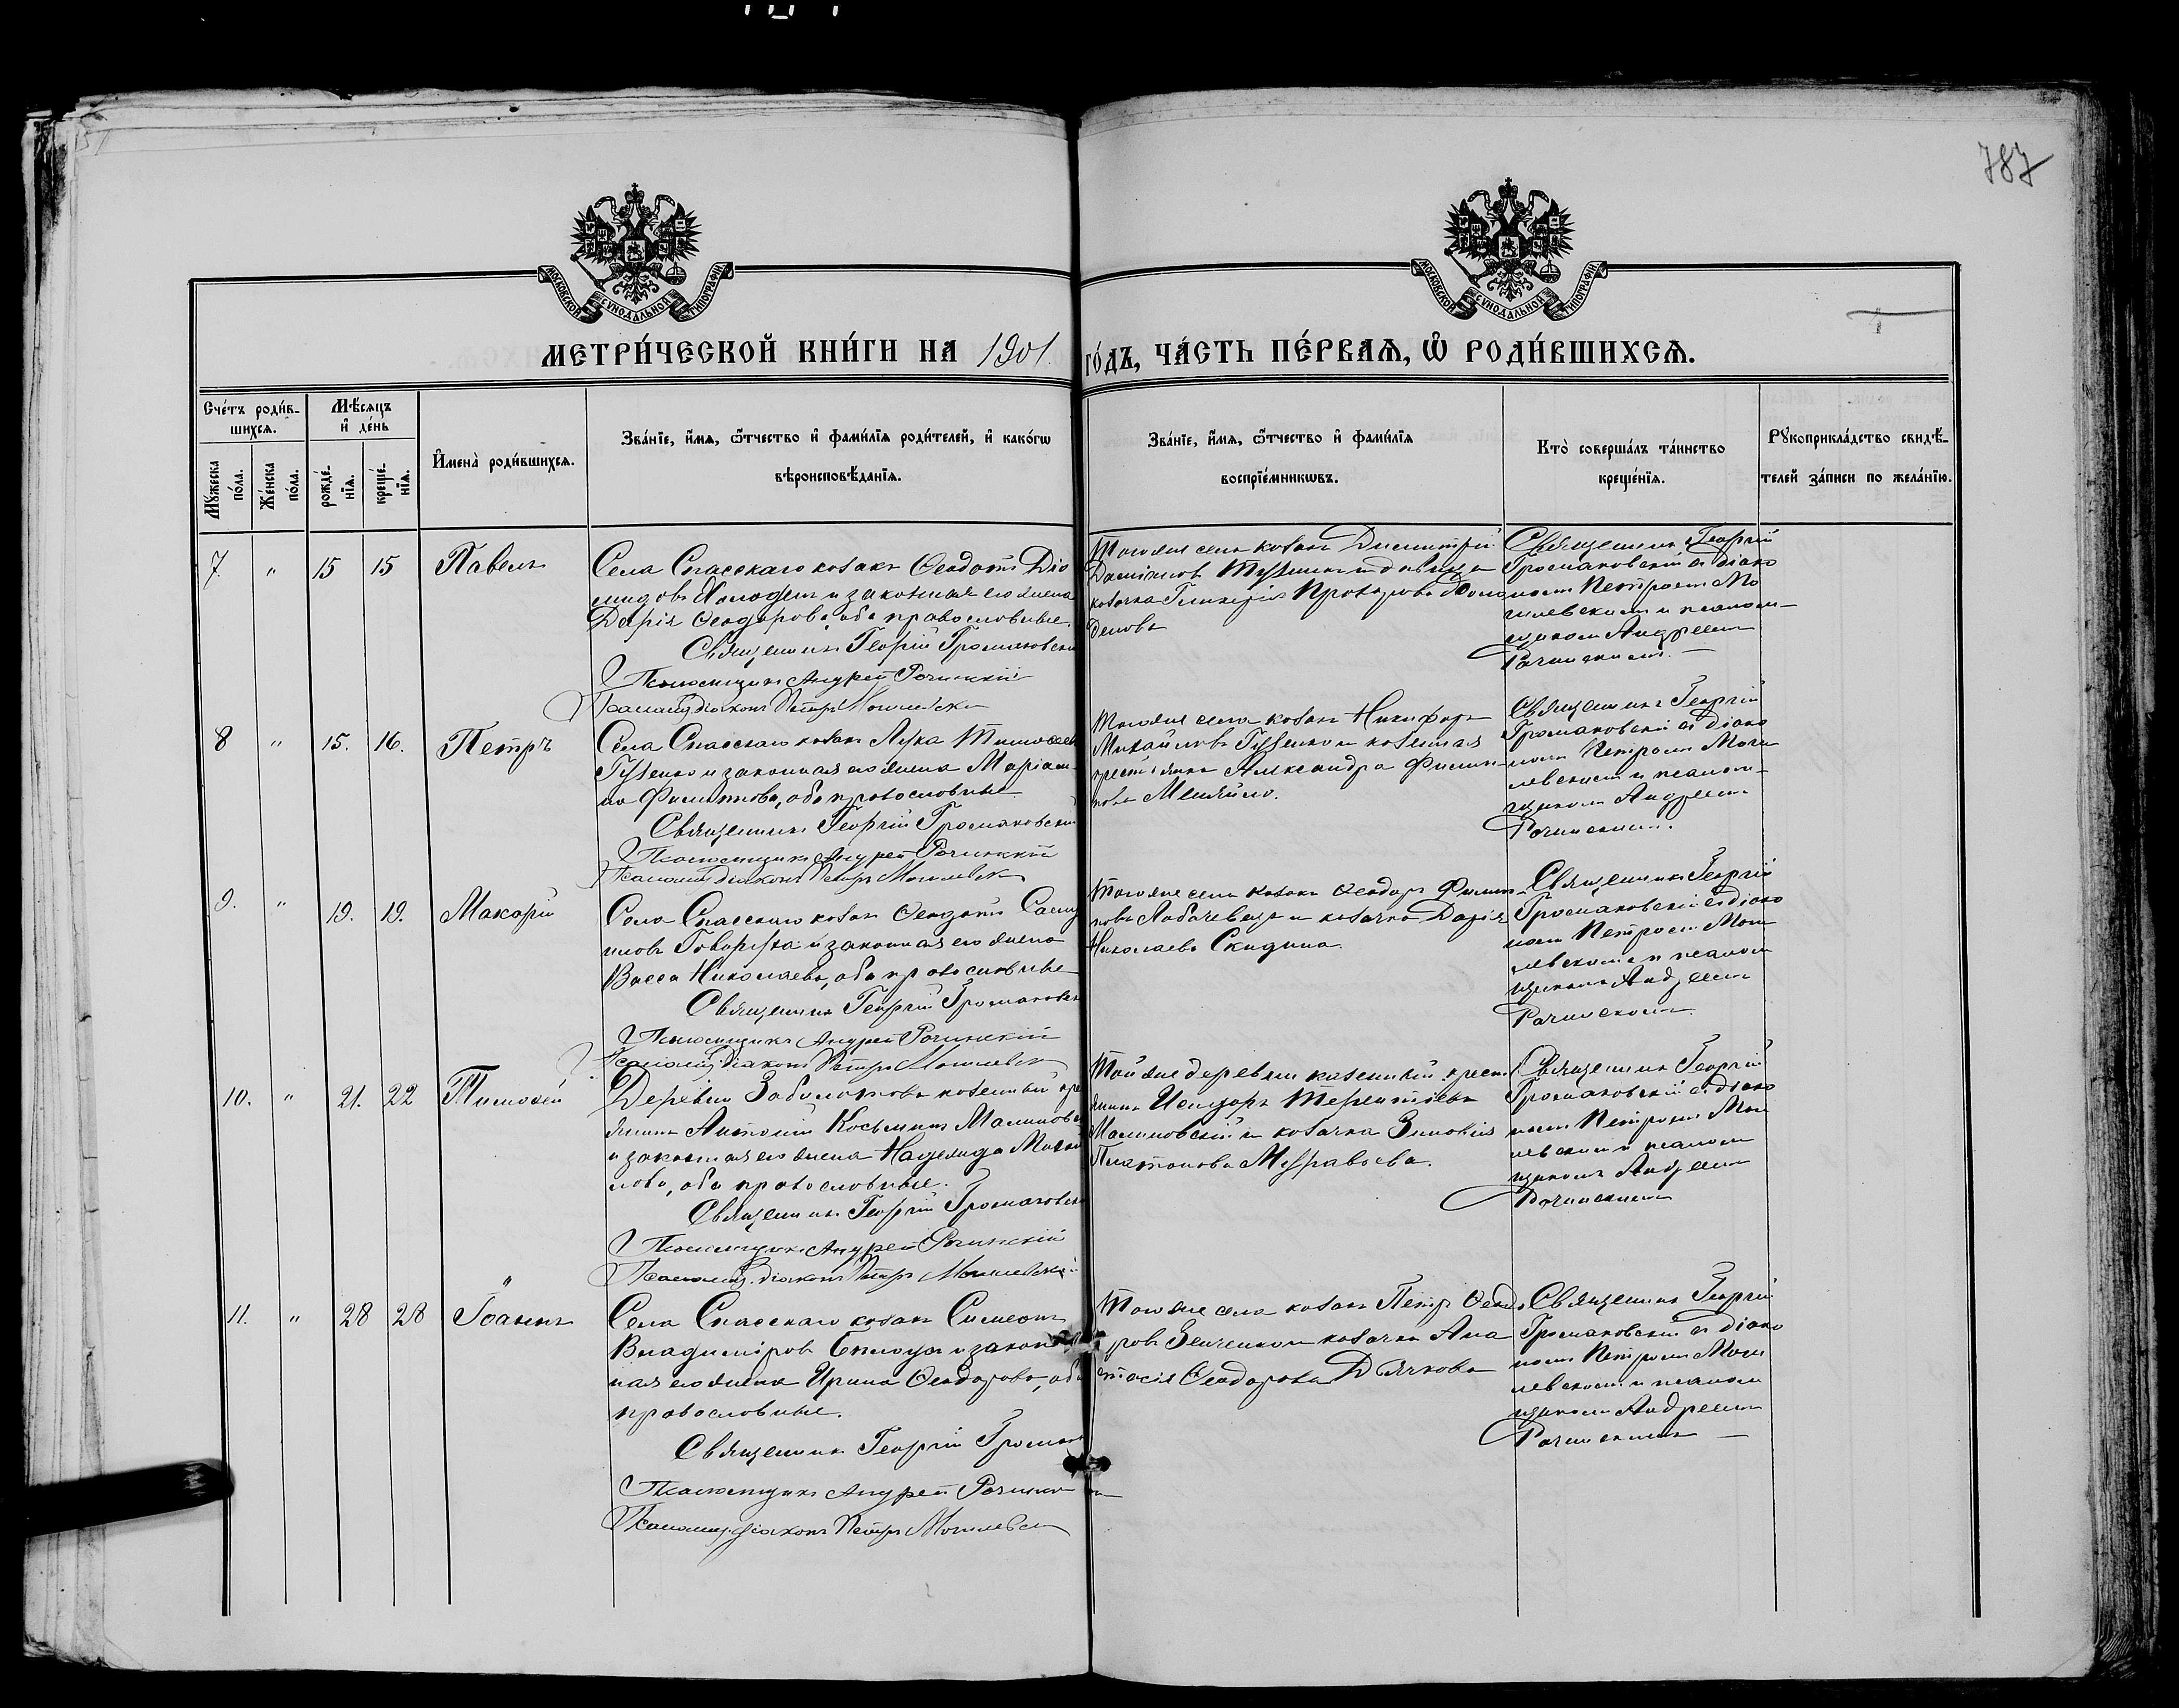 787
МОСКОВСКОЙ СѴНОДАЛЬНОЙ ТИПОГРАФІИ
МОСКОВСКОЙ СѴНОДАЛЬНОЙ ТИПОГРАФІИ
МЕТРИ́ЧЕСКОЙ КНИ́ГИ НА 1901 ГО́ДЪ, ЧА́СТЬ ПЕ́РВАѦ, Ѡ҆ РОДИ́ВШИХСѦ.
Сче́тъ роди́в-
шихсѧ.
Мꙋ́жеска по́ла.
Же́нска по́ла.
Мѣ́сѧцъ и҆ де́нь
рожде́нїѧ.
креще́нїѧ.
И҆мена̀ роди́вшихсѧ.
Зва́нїе, и҆́мѧ, ѻ҆́тчество и҆ фами́лїѧ роди́телей, и҆ како́гѡ
вѣроисповѣ́данїѧ.
Зва́нїе, и҆́мѧ, ѻ҆́тчество и҆ фами́лїѧ
воспрїе́мникѡвъ.
Кто̀ соверша́лъ та́инство
креще́нїѧ.
Рꙋкоприкла́дство свидѣ́-
телей за́писи по жела́нїю.
7. " 15 15 Павелъ
Села Спасскаго козакъ Ѳеодотъ Діо
мидовъ и законная его жена
Дарія Ѳеодорова, оба православные.
Священникъ Георгій Громаковскій
Псаломщикъ Андрей Рочинскій
діаконъ Петръ Могилевскій
Тогоже села козакъ Димитрій
козачка Гликерія
Священникъ Георгій
Громаковскій съ діако
номъ Петромъ Мо
гилевскимъ и псалом-
щикомъ Андреемъ
Рочинскимъ.
8 " 15. 16. Петръ
Села Спасскаго козакъ Лука Тимоѳеевъ
Гузенко и законная его жена Маріам-
на Филиппова, оба православные
Священникъ Георгій Громаковскій
Псаломщикъ Андрей Рочинскій
діаконъ Петръ Могилевскій
Тогоже села козакъ Никифоръ
Михайловъ Гузенко и козенная
крестьянка Александра Филип-
пова
Священникъ Георгій
Громаковскій съ діако
номъ Петромъ Моги
левскимъ и псалом-
щикомъ Андреемъ
Рочинскимъ.
9. " 19. 19. Макарій
Села Спасскаго козакъ Ѳеодотъ
иловъ и законная его жена
Васса Николаева, оба православные
Священникъ Георгій Громаковскій
Псаломщикъ Андрей Рочинскій
діаконъ Петръ Могилевскій
Тогоже села козакъ Ѳеодоръ Филип-
повъ и козачка Дарія
Николаева Скидина.
Священникъ Георгій
Громаковскій съ діако
номъ Петромъ Моги
левскимъ и псалом
щикомъ Андреемъ
Рочинскимъ
10. " 21. 22 Тимоѳей
Деревни Заболотова козенный кре
янинъ Антоній Косьминъ Малиновс
и законная его жена Надежда Михай
лова, оба православные.
Священникъ Георгій Громаковскій
Псаломщикъ Андрей Рочинскій
діаконъ Петръ Могилевскій
Тойже деревни козенный крест
янинъ Исидоръ Терентіевъ
Малиновскій и козачка Зиновія
Платонова Муравьева.
Священникъ Георгій
Громаковскій съ діако
номъ Петромъ Моги
левскимъ и псалом
щикомъ Андреемъ
Рочинскимъ
11. " 28 28 Іоаннъ
Села Спасскаго козакъ Симеонъ
Владиміровъ и закон
ная его жена Ирина Ѳеодорова, оба
православные.
Священникъ Георгій Громак
Псаломщикъ Андрей Рочинскій
діаконъ Петръ Могилевскій
Тогоже села козакъ Петръ Ѳеодо
ровъ Зенченко и козачка Ана
стасія Ѳеодорова Дьячкова
Священникъ Георгій
Громаковскій съ діако
номъ Петромъ Моги
левскимъ и псалом
щикомъ Андреемъ
Рочинскимъ